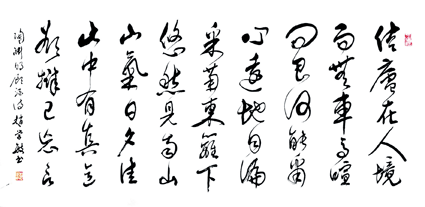 结廬在人境
而無車馬喧
问君何能爾
心遠地自偏
采菊東籬下
悠然見南山
山氣日夕佳
此中有真意
欲辯已忘言
陶渊明